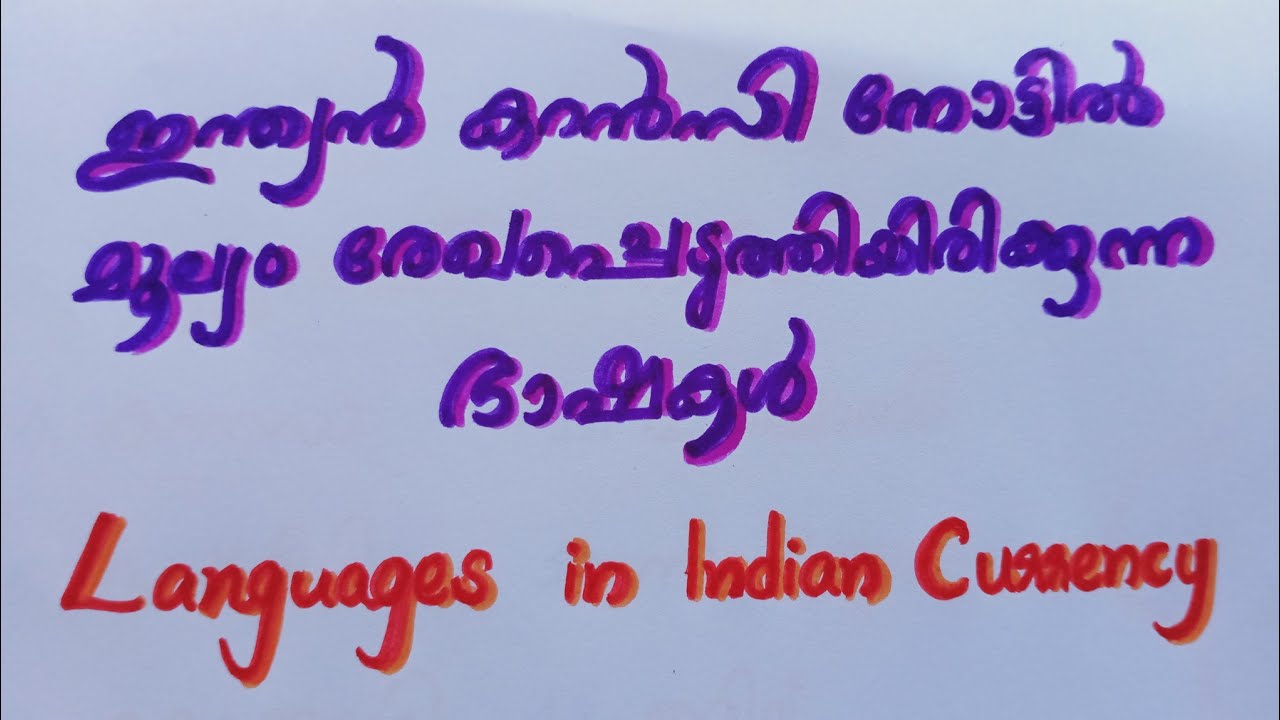 ഇന്ത്യൻ കറൻസി നോട്ടിൽ
മൂല്യം രേഖപ്പെടുത്തിയിരിക്കുന്ന
ഭാഷകൾ
Languages in Indian Currency